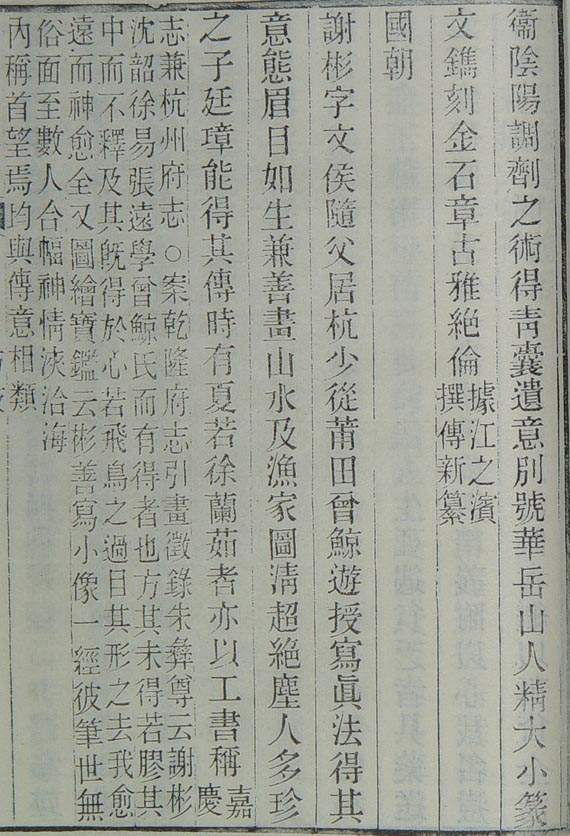 衞陰陽調劑之術得靑囊遺意別號華岳山人精大小篆
文鐫刻金石章古雅絕倫
據江之濱
撰傳新纂
國朝
謝彬字文侯隨父居杭少從莆田曾鯨遊授寫眞法得其
意態眉目如生兼善畫山水及漁家圖淸超絕塵人多珍
之子廷璋能得其傳時有夏若徐蘭茹者亦以工書稱
嘉
慶
志兼杭州府志○案乾隆府志引畫徵錄朱彝尊云謝彬
沈韶徐易張遠學曾鯨氏而有得者也方其未得若膠其
中而不釋及其旣得於心若飛鳥之過目其形之去我愈
遠而神愈全又圖繪寶鑑云彬善寫小像一經彼筆世無
俗面至數人合幅神情浹洽海
內稱首望焉均與傳意相類